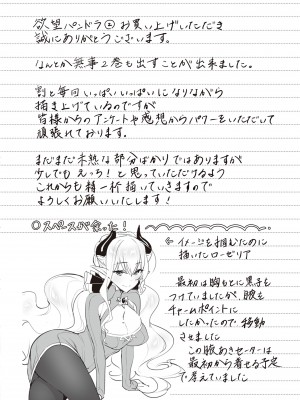 欲望パンドラ②お買い上げいただき
誠にありがとうございます。
なんとか無事2巻も出すことが出来ました。
割と毎回いっぱいいっぱいになりながら
描き上げているのですが
皆様からのアンケートや感想からパワーをいただいて
頑張れております。
まだまだ未熟な部分ばかりではありますが
少しでもえっち!と思っていただけるよう
これからも精一杯描いていきますので
よろしくお願いいたします!
○スペースが余った!
← イメージを掴むために
描いたローゼリア
最初は胸もとに黒子を
つけていましたが、腹も
チャームポイントに
したかったので移動
させました
この腹あきセーターは
最初から着せる予定
で考えていました